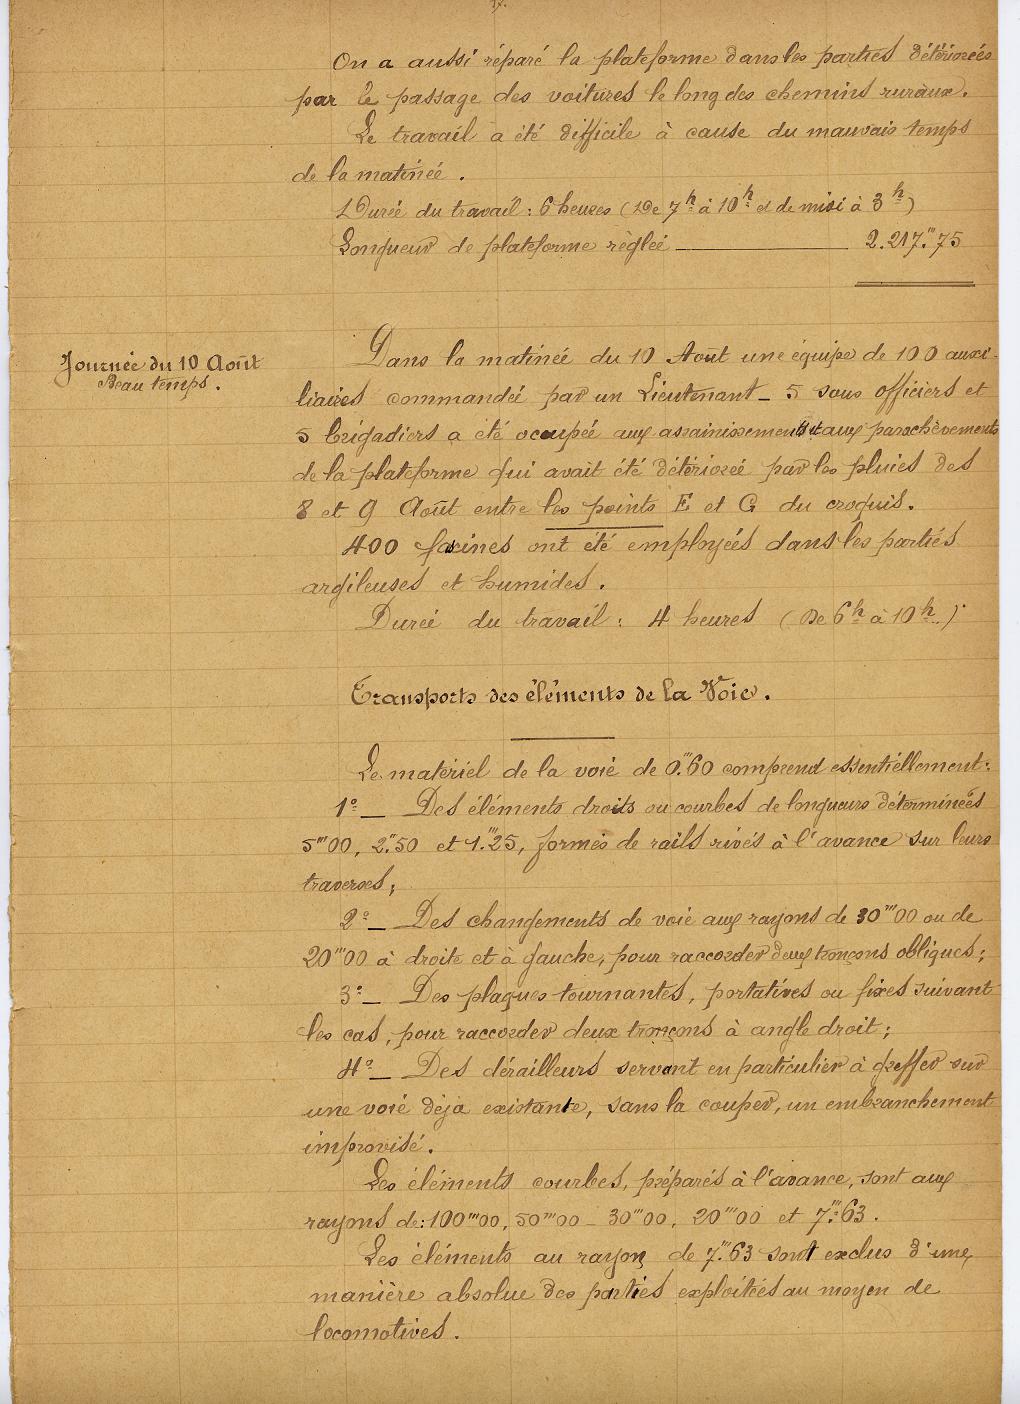 On a aussi réparé la plateforme dans les parties détériorées
par le passage des voitures le long des chemins ruraux.
Le travail a été difficile à cause du mauvais temps
de la matinée.
Durée du travail : 6 heures (De 7h à 10h et de midi à 3h)
Longueur de plateforme règlée 2.217.m75
Journée du 10 Août
Beau temps.
Dans la matinée du 10 Août une équipe de 100 auxi-
liaires commandée par un Lieutenant _ 5 sous officiers et
5 brigadiers a été occupée aux assainissements et aux parachèvements
de la plateforme qui avait été détériorée par les pluies des
8 et 9 Août entre les points E et G du croquis.
400 fascines ont été employées dans les parties
argileuses et humides.
Durée du travail : 4 heures (De 6h à 10h.)
Transports des éléments de la Voie.
Le matériel de la voie de 0.m60 comprend essentiellement :
1o_ Des éléments droits ou courbes de longueurs déterminées
5m00, 2.m50 et 1.m25, formés de rails rivés à l'avance sur leurs
traverses ;
2o_ Des changements de voie aux rayons de 30m00 ou de
20m00 à droite et à gauche, pour raccorder deux tronçons obliques ;
3o_ Des plaques tournantes, portatives ou fixes suivant
les cas, pour raccorder deux tronçons à angle droit ;
4o_ Des dérailleurs servant en particulier à greffer sur
une voie déja existante, sans la couper, un embranchement
improvisé.
Les éléments courbes, préparés à l'avance, sont aux
rayons de : 100m00, 50m00 _ 30m00, 20m00 et 7.m63.
Les éléments au rayon de 7.m63 sont exclus d'une
manière absolue des parties exploitées au moyen de
locomotives.